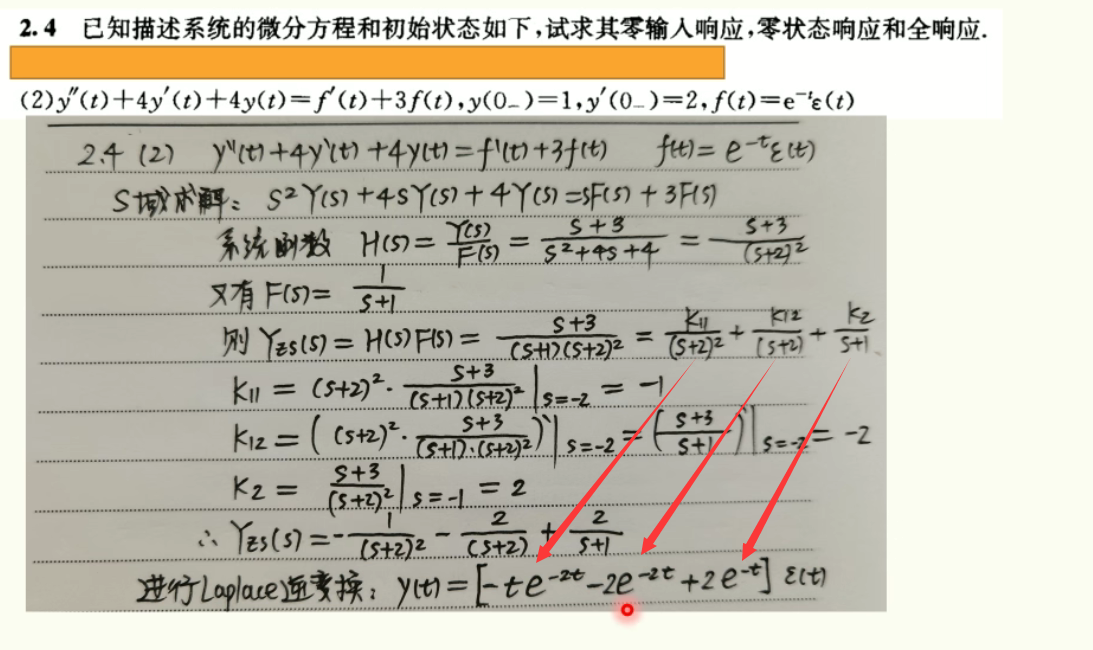 2.4 已知描述系统的微分方程和初始状态如下,试求其零输入响应,零状态响应和全响应.
(2)y″(t)+4y′(t)+4y(t)=f′(t)+3f(t),y(0₋)=1,y′(0₋)=2,f(t)=e⁻ᵗε(t)
2.4 (2) y''(t)+4y'(t)+4y(t)=f'(t)+3f(t) f(t)=e^{-t}ε(t)
S域求解: S²Y(s)+4SY(s)+4Y(s)=SF(s)+3F(s)
系统函数 H(s)=Y(s)/F(s)=(S+3)/(S²+4S+4)=(S+3)/(S+2)²
又有F(s)=1/(S+1)
则 Yzs(s)=H(s)F(s)=(S+3)/((S+1)(S+2)²)=K₁₁/(S+2)²+K₁₂/(S+2)+K₂/(S+1)
K₁₁=(S+2)²·(S+3)/((S+1)(S+2)²)|S=-2=-1
K₁₂=((S+2)²·(S+3)/((S+1)·(S+2)²))'|S=-2=((S+3)/(S+1))'|S=-2=-2
K₂=(S+3)/(S+2)²|S=-1=2
∴Yzs(s)=-1/(S+2)²-2/(S+2)+2/(S+1)
进行Laplace逆变换: y(t)=[-te^{-2t}-2e^{-2t}+2e^{-t}]ε(t)